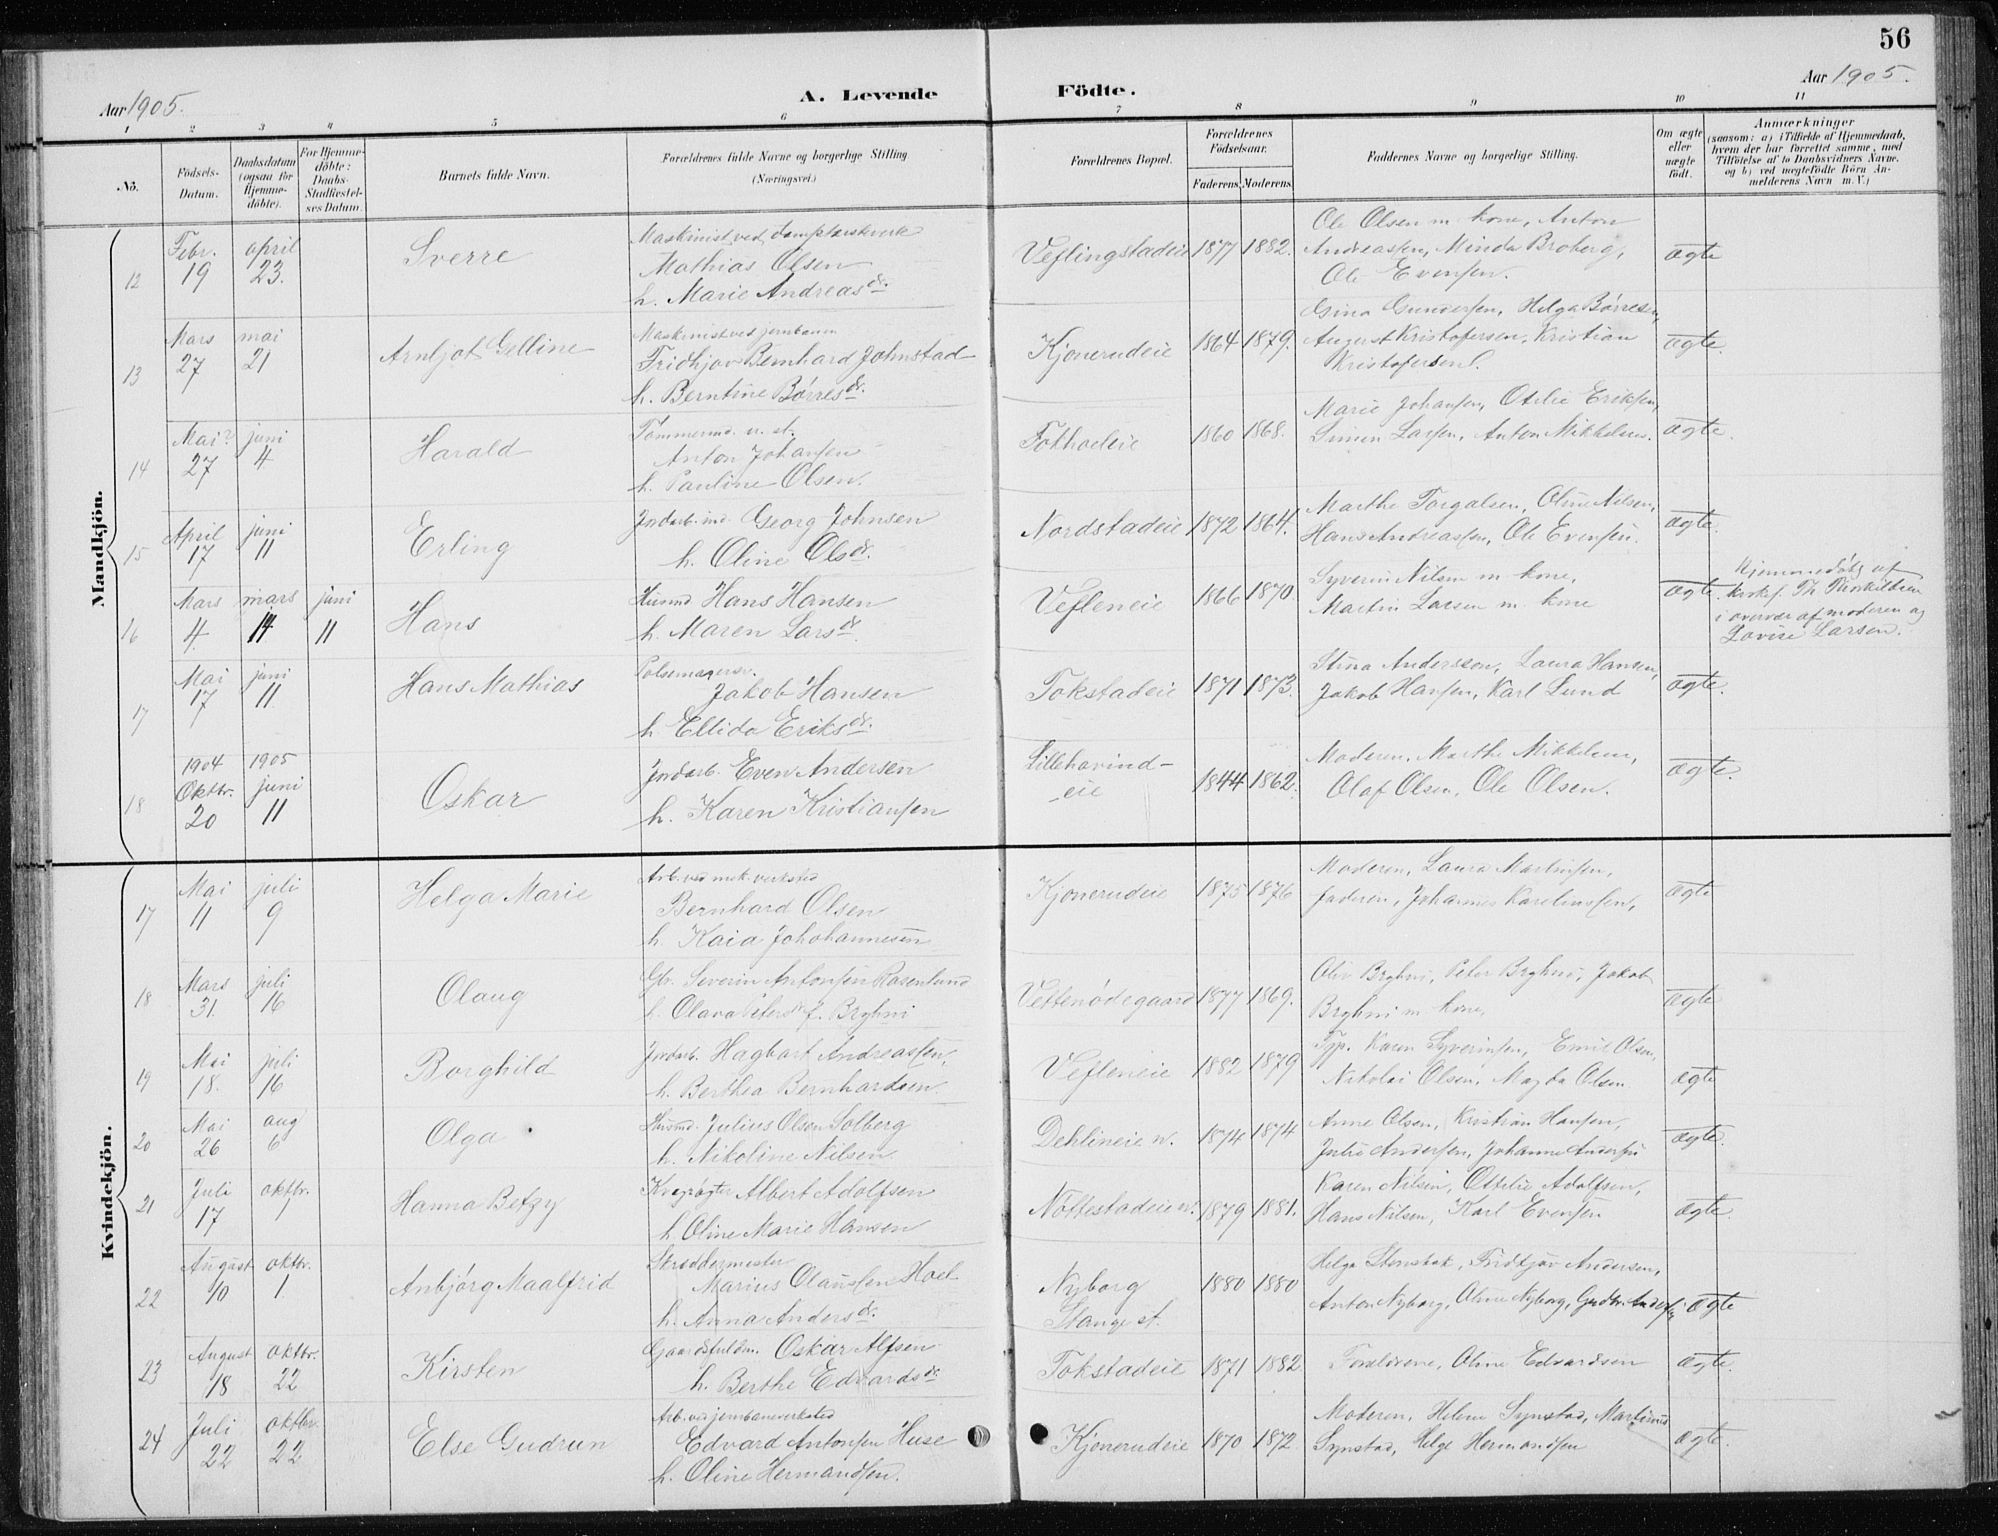 56
Aar 1905.
A. Levende Födte.
Aar 1905.
1 2 3 4 5 6 7 8 9 10 11
Nö.
Födsels-Datum.
Daabsdatum (ogsaa for Hjemme-döbte).
For Hjemme-döbte: Daabs-Stadfæstel-ses Datum.
Barnets fulde Navn.
Forældrenes fulde Navne og borgerlige Stilling
(Næringsvei.)
Forældrenes Bopæl.
Forældrenes Födselsaar.
Faderens. Moderens.
Faddernes Navne og borgerlige Stilling.
Om ægte eller uægte födt.
Anmærkninger
(saasom: a) i Tilfælde af Hjemmedaab,
hvem der har forrettet samme, med
Tilföielse af to Daabsvidners Navne,
og b) ved uægtefödte Börn An-
melderens Navn m. V.)
Mandkjön.
12 Febr. 19 april 23. Sverre
Maskinist ved
Mathias Olsen
h. Marie Andreasdr.
Veflingstadeie 1877 1882.
Ole Olsen m kone, Anton
Andreassen, Minda Broberg,
Ole Evensen.
ægte
13 Mars 27 mai 21 Arnljot Gelline
Maskinist ved jernbanen
Fridtjov Bernhard Johnstad
h. Berntine Børresdr.
Kjonerudeie 1864 1879.
Gina Gundersen, Helga Børresen,
August Kristofersen, Kristian
Kristofersen
ægte.
14 Mai? 27 juni 4 Harald
Tømmermd. u. st.
Anton Johansen
h. Pauline Olsen.
Fothodeie 1860 1868.
Marie Johansen, Otilie Eriksen,
Simen Larsen, Anton Mikkelsen.
ægte.
15 April 17 juni 11 Erling
Jordarb. ind. Georg Johnsen
h. Oline Olsdr.
Nordstadeie 1872 1864.
Marthe Torgalsen, Oline Nilsen,
Hans Andreassen, Ole Evensen.
ægte.
16 Mars 4. mars 14 juni 11 Hans
Husmd Hans Hansen
h. Maren Larsdr.
Vefleneie 1866 1870.
Syverin Nilsen m kone,
Martin Larsen m. kone
ægte.
Hjemmedøbt af
kirkes. Th.
i overvær af moderen og
Lovise Larsen.
17 Mai 17 juni 11 Hans Mathias
Pølsemagersv.
Jakob Hansen
h. Ellida Eriksdr.
Tokstadeie 1871 1873.
Stina Andersson, Laura Hansen,
Jakob Hansen, Karl Lund
ægte.
18 1904 Oktbr. 20 1905 juni 11 Oskar
Jordarb. Even Andersen
h. Karen Kristiansen
Lillehovind-
eie 1844 1862.
Moderen, Marthe Mikkelsen,
Olaf Olsen, Ole Olsen.
ægte.
Kvindekjön.
17 Mai 11 juli 9 Helga Marie
Arb. ved mek. verksted
Bernhard Olsen
h. Kaia Johohannesen
Kjonerudeie 1875 1876
Moderen, Laura Martinsen,
faderen, Johannes Karelinssen,
ægte
18 Mars 31. juli 16 Olaug
Gbr. Severin Antonsen Rosenlund
h. Olava Petersdr. f. Bryhni
Vettenødegaard 1877 1869.
Oliv Bryhni, Peter Bryhni, Jakob
Bryhni m kone,
ægte
19 Mai 18. juli 16 Borghild
Jordarb. Hagbart Andreassen,
h. Berthea Bernhardsen.
Vefleneie 1882 1879
Typ. Karen Syverinsen, Emil Olsen,
Nikolai Olsen, Magda Olsen
ægte
20 Mai 26 aug 6 Olga
Husmd. Julius Olsen Solberg
h. Nikoline Nilsen
Dehlineie n. 1874 1874
Anne Olsen, Kristian Hansen,
Julie Andersen, Johanne Andersen
ægte.
21 Juli 17 oktbr. 1 Hanna Betzy
Kvægrøgter Albert Adolfsen
h. Oline Marie Hansen
Nøttestadeie n. 1879 1881.
Karen Nilsen, Ottilie Adolfsen,
Hans Nilsen, Karl Evensen
ægte.
22 August 10 oktbr. 1. Anbjørg Maalfrid
Skræddermester
Marius Olaussen Hoel
h. Anna Andersdr.
Nyborg
Stange st. 1880 1880
Helga Stensbak, Fridtjov Andersen,
Anton Nyborg, Oline Nyborg, Gudbr. Andersen
ægte
23 August 18 oktbr. 22 Kirsten
Gaardsfuldm. Oskar Alfsen
h. Berthe Edvardsdr.
Tokstadeie 1871 1882
Forældrene, Oline Edvardsen
ægte.
24 Juli 22 oktbr. 22 Else Gudrun
Arb. ved jernbaneverksted
Edvard Antonsen Huse
h. Oline Hermandsen.
Kjonerudeie 1870 1872.
Moderen, Helene Synstad, Martinus
Synstad, Helge Hermandsen
ægte.